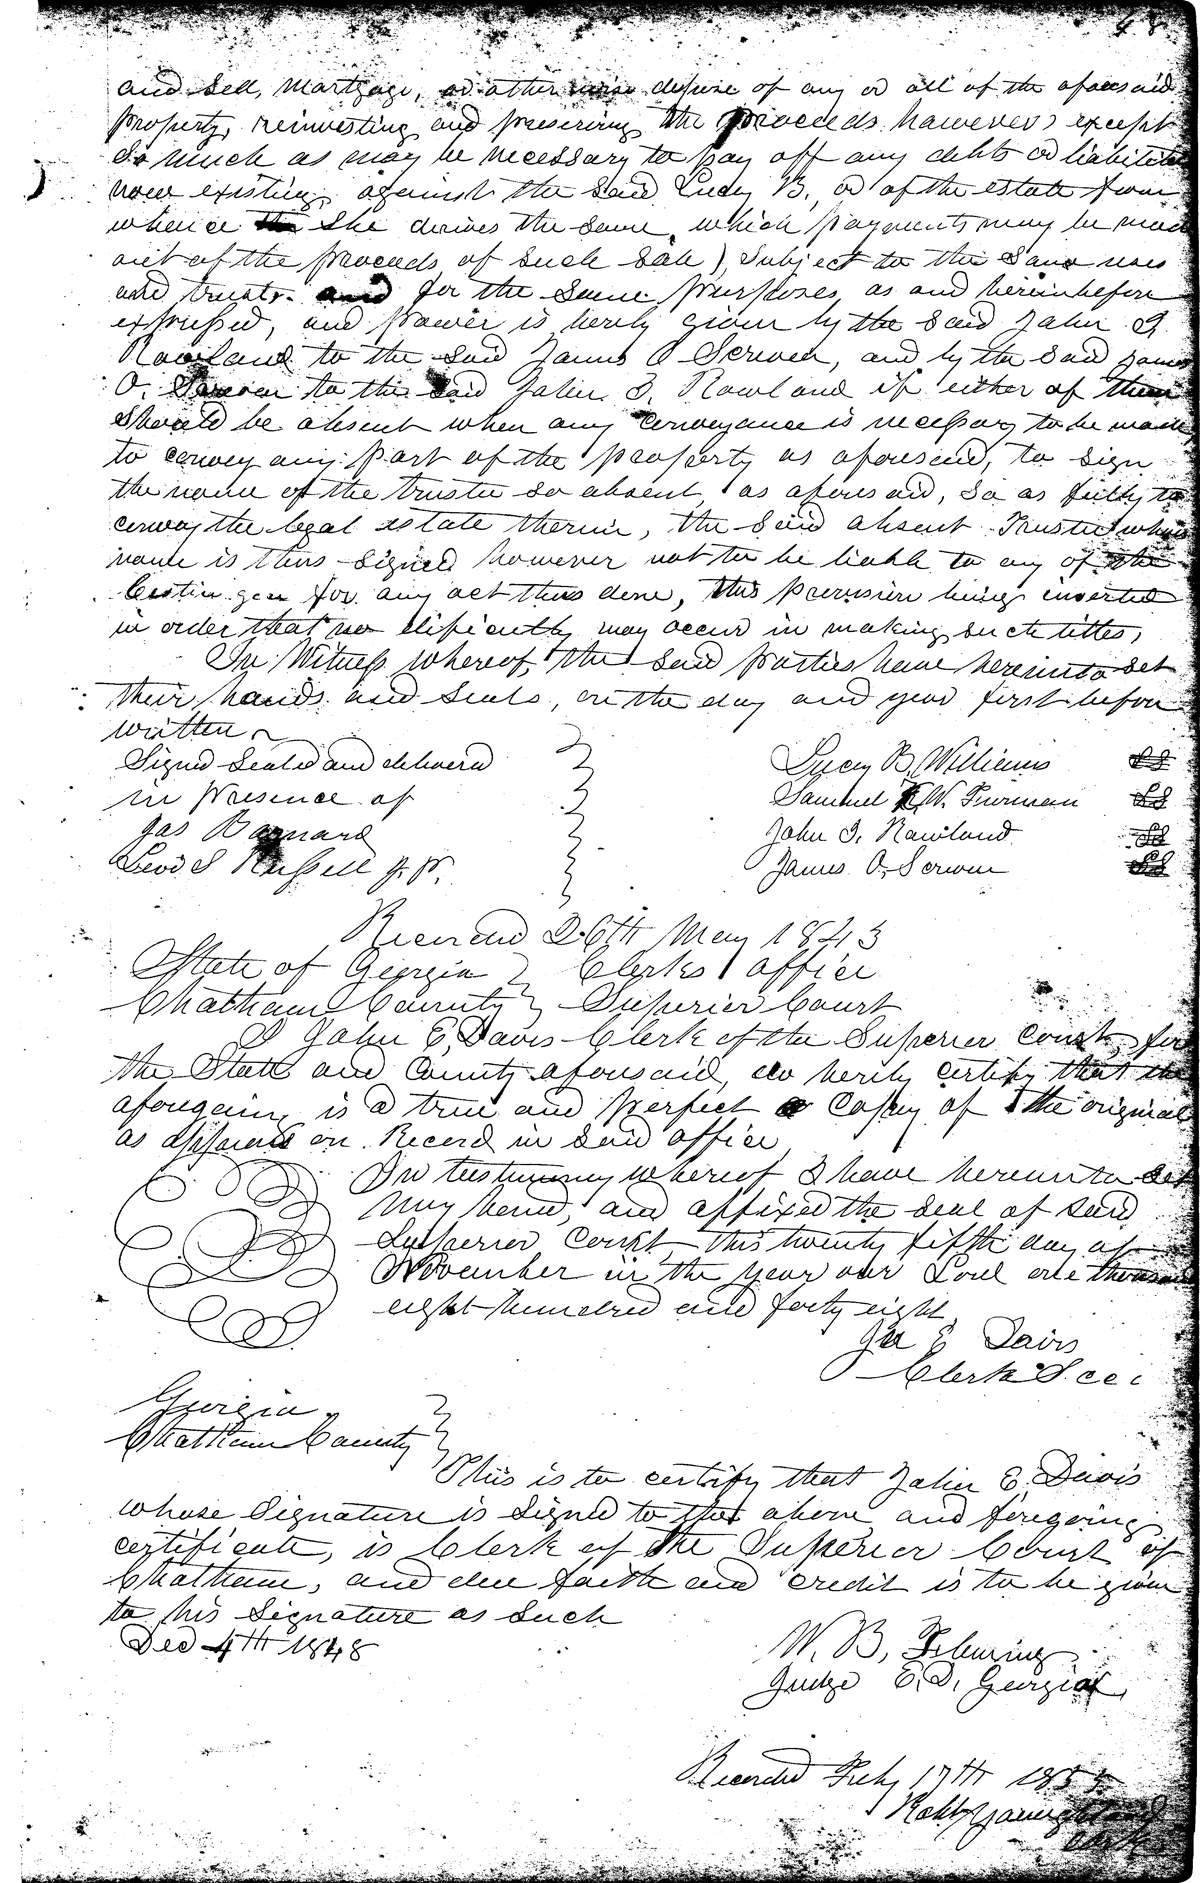 and sell, mortgage, or otherwise dispose of any or all of the aforesaid
property, reinvesting and preserving the proceeds however, except
so much as may be necessary to pay off any debts or liabilities
now existing against the said Lucy B., or of the estate from
whence she derives the same, which payments may be made
out of the proceeds of such sale), subject to the same uses
and trusts and for the same purposes, as and hereinbefore
expressed, and power is herby given by the said John I.
Rowland to the said James O Screven, and by the said James
O. Screven to the said John I. Rowland if either of them
should be absent when any conveyance is necessary to be made
to convey any part of the property as aforesaid, to sign
the name of the trustee so absent, as aforesaid, so as fully to
convey the legal estate therein, the said absent Trustee whose
name is thus signed however not to be liable to any of the
for any act thus done, this provision being inserted
in order that no dificiently may occur in making such titles,
In Witness whereof, the said parties have hereunto set
their hands and seals, on the day and year first before
written
Signed sealed and deliverd
in presence of
Jas Barnard
Levi S Russell J.P.
Lucy B. Williams LS
Samuel W. Furman LS
John I. Rowland LS
James O. Screven LS
Recorded 26th May 1843
State of Georgia Clerks office
Chatham County Superior Court
I John E. Davis Clerk of the Superior Court, for
the State and County aforesaid, do herby certify that the
aforegoing is a true and perfect Copy of the original
as appears on Record in said office
In testimony whereof I have hereunto set
my hand, and affixed the seal of said
Superior Court, this twenty fifth day of
November in the year our Lord one thousand
eight hundred and forty eight,
Jn E Davis
Clerk S.CCC
Georgia
Chatham County
This is to certify that John E. Davis
whose signature is signed to the above and foregoing
certificate, is Clerk of the Superior Court of
Chatham, and due faith and credit is to be given
to his signature as such
Dec 4th 1848
W. B. Fleming
Judge E. D. Georgia
Recorded Feby 17th
Robt Youngblood
Clerk